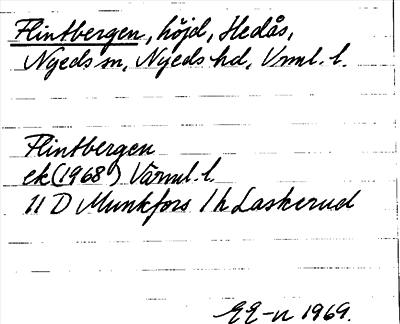 Flintbergen, höjd, Hedås,
Nyeds sn, Nyeds hd, Vrml. l.
Flintbergen
ek (1968) Värml. l.
11 D Munkfors 1 h Laskerud
EE-n 1969.